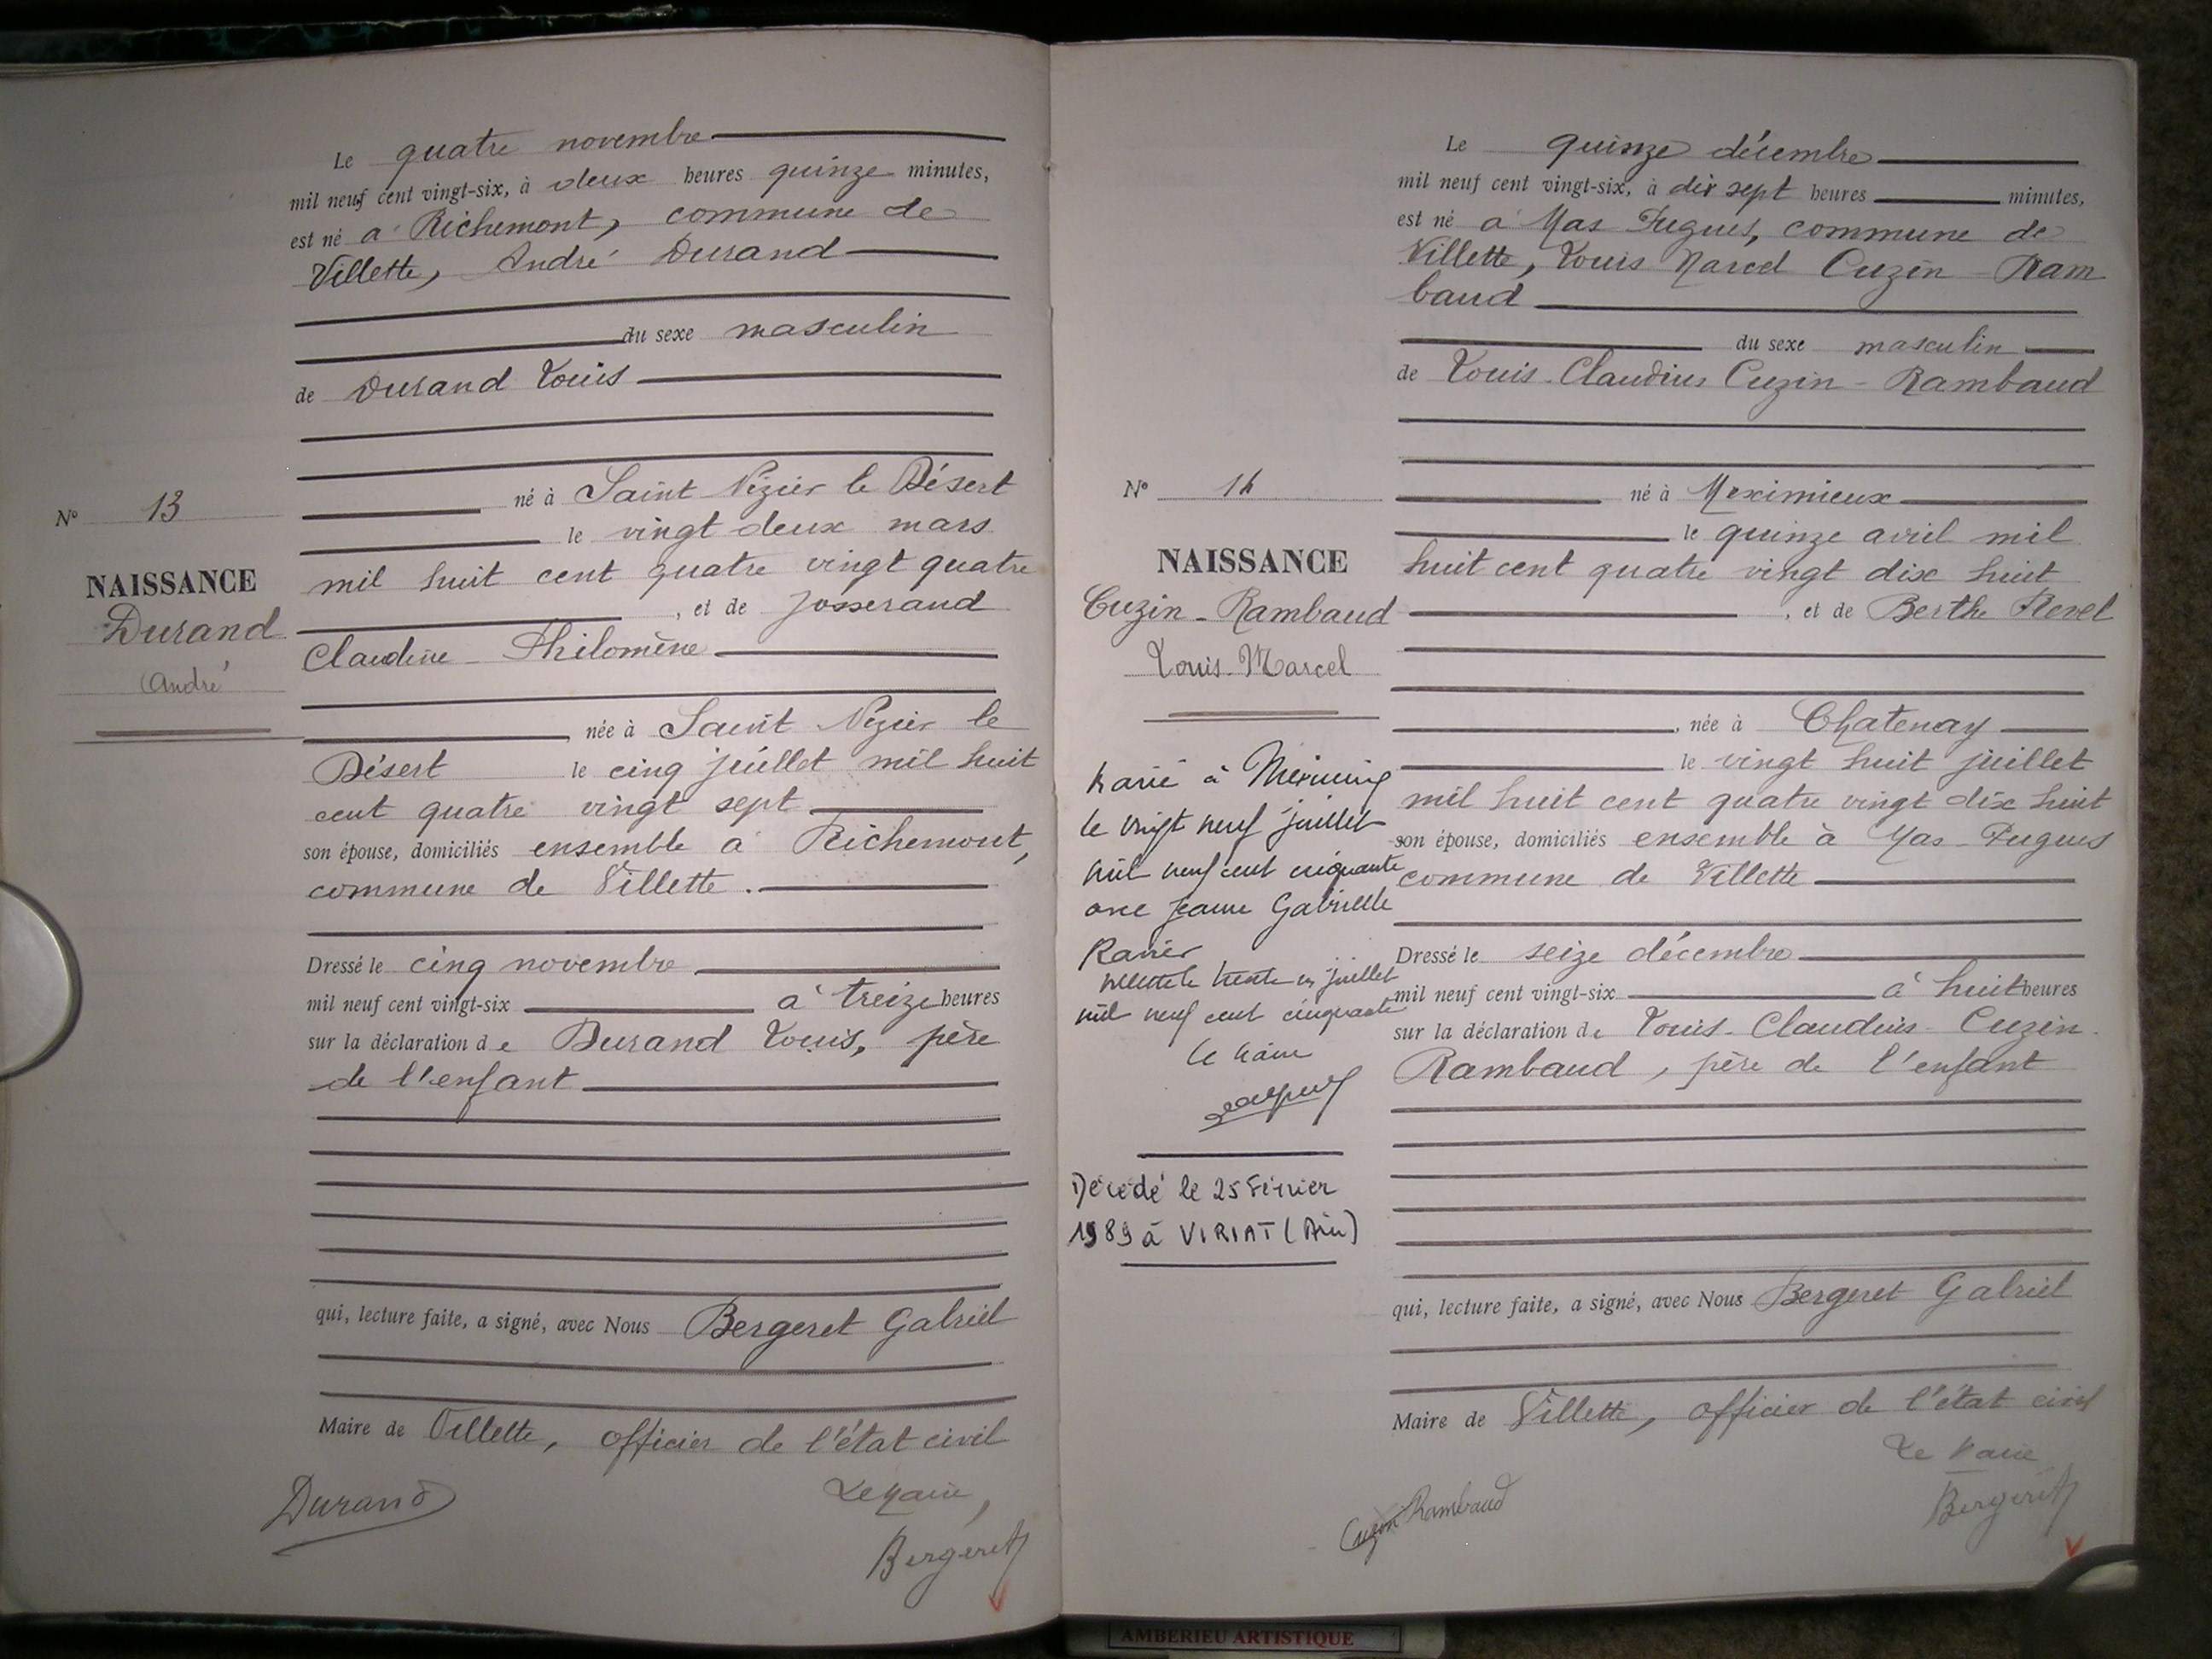 Le quatre novembre
mil neuf cent vingt-six, à deux heures quinze minutes,
est né à Richemont, commune de
Villette, André Durand
du sexe masculin
de Durand Louis
né à Saint Nizier le Désert
le vingt deux mars
mil huit cent quatre vingt quatre
, et de Josserand
Claudine Philomène
, née à Saint Nizier le
Désert le cinq juillet mil huit
cent quatre vingt sept
son épouse, domiciliés ensemble à Richemont,
commune de Villette.
Dressé le cinq novembre
mil neuf cent vingt-six à treize heures
sur la déclaration de Durand Louis, père
de l'enfant
qui, lecture faite, a signé, avec Nous Bergeret Gabriel
Maire de Villette, officier de l'état civil
Durand
Le Maire,
Bergeret
N° 13
NAISSANCE
Durand
André
Le quinze décembre
mil neuf cent vingt-six, à dix sept heures minutes,
est né à Mas Pugues, commune de
Villette, Louis Marcel Cuzin-Ram
baud
du sexe masculin
de Louis-Claudius Cuzin-Rambaud
né à Meximieux
le quinze avril mil
huit cent quatre vingt dix huit
, et de Berthe Revel
, née à Chatenay
le vingt huit juillet
mil huit cent quatre vingt dix huit
son épouse, domiciliés ensemble à Mas-Pugues
commune de Villette
Dressé le seize décembre
mil neuf cent vingt-six à huit heures
sur la déclaration de Louis-Claudius Cuzin-
Rambaud, père de l'enfant
qui, lecture faite, a signé, avec Nous Bergeret Gabriel
Maire de Villette, officier de l'état civil
Le Maire
Bergeret
Cuzin Rambaud
N° 14
NAISSANCE
Cuzin-Rambaud
Louis-Marcel
Marié à
le vingt neuf juillet
mil neuf cent cinquante
avec Jeanne Gabrielle
Ravier
Villette le trente un juillet
mil neuf cent cinquante
Le Maire
Décédé le 25 Février
1989 à VIRIAT (Ain)
AMBERIEU ARTISTIQUE